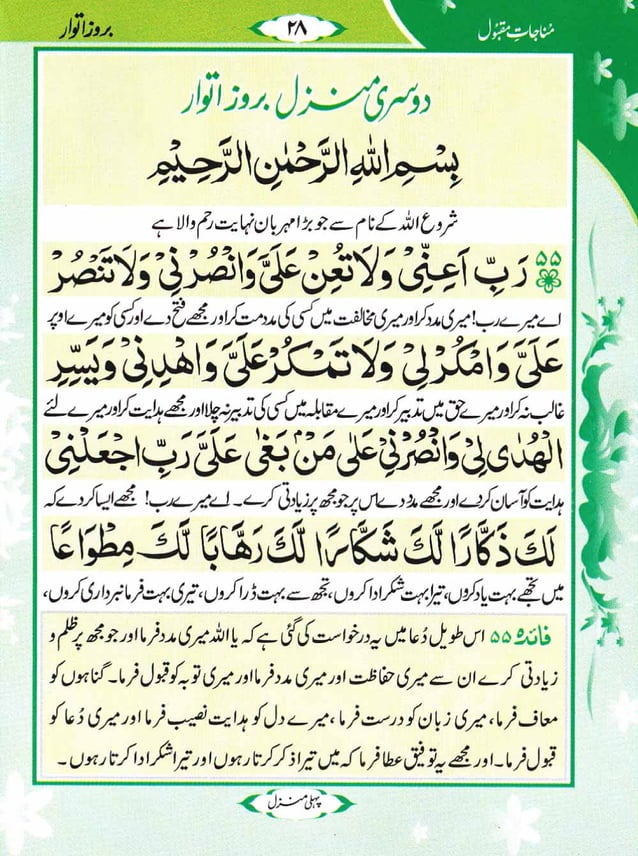 مُناجاتِ مقبُول
۲۸
بروز اتوار
دوسری منزل بروز اتوار
بِسْمِ اللهِ الرَّحْمٰنِ الرَّحِيْمِ
شروع اللہ کے نام سے جو بڑا مہربان نہایت رحم والا ہے
۵۵ رَبِّ اَعِنِّیْ وَلَا تُعِنْ عَلَیَّ وَانْصُرْ نِیْ وَلَا تَنْصُرْ
اے میرے رب! میری مدد کر اور میری مخالفت میں کسی کی مدد مت کر اور مجھے فتح دے اور کسی کو میرے اوپر
عَلَیَّ وَامْكُرْ لِیْ وَلَا تَمْكُرْ عَلَیَّ وَاهْدِنِیْ وَيَسِّرِ
غالب نہ کر اور میرے حق میں تدبیر کر اور میرے مقابلہ میں کسی کی تدبیر نہ چلا اور مجھے ہدایت کر اور میرے لئے
الْهُدٰی لِیْ وَانْصُرْنِیْ عَلٰی مَنْ بَغٰی عَلَیَّ رَبِّ اجْعَلْنِیْ
ہدایت کو آسان کر دے اور مجھے مدد دے اس پر جو مجھ پر زیادتی کرے۔ اے میرے رب! مجھے ایسا کر دے کہ
لَكَ ذَكَّارًا لَّكَ شَكَّارًا لَّكَ رَهَّابًا لَّكَ مِطْوَاعًا
میں تجھے بہت یاد کروں، تیرا بہت شکر ادا کروں، تجھ سے بہت ڈرا کروں، تیری بہت فرمانبرداری کروں،
فائدہ ۵۵ اس طویل دُعا میں یہ درخواست کی گئی ہے کہ یا اللہ میری مدد فرما اور جو مجھ پر ظلم و
زیادتی کرے ان سے میری حفاظت اور میری مدد فرما اور میری توبہ کو قبول فرما۔ گناہوں کو
معاف فرما، میری زبان کو درست فرما، میرے دل کو ہدایت نصیب فرما اور میری دُعا کو
قبول فرما۔ اور مجھے یہ توفیق عطا فرما کہ میں تیرا ذکر کرتا رہوں اور تیرا شکر ادا کرتا رہوں۔
پہلی منزل